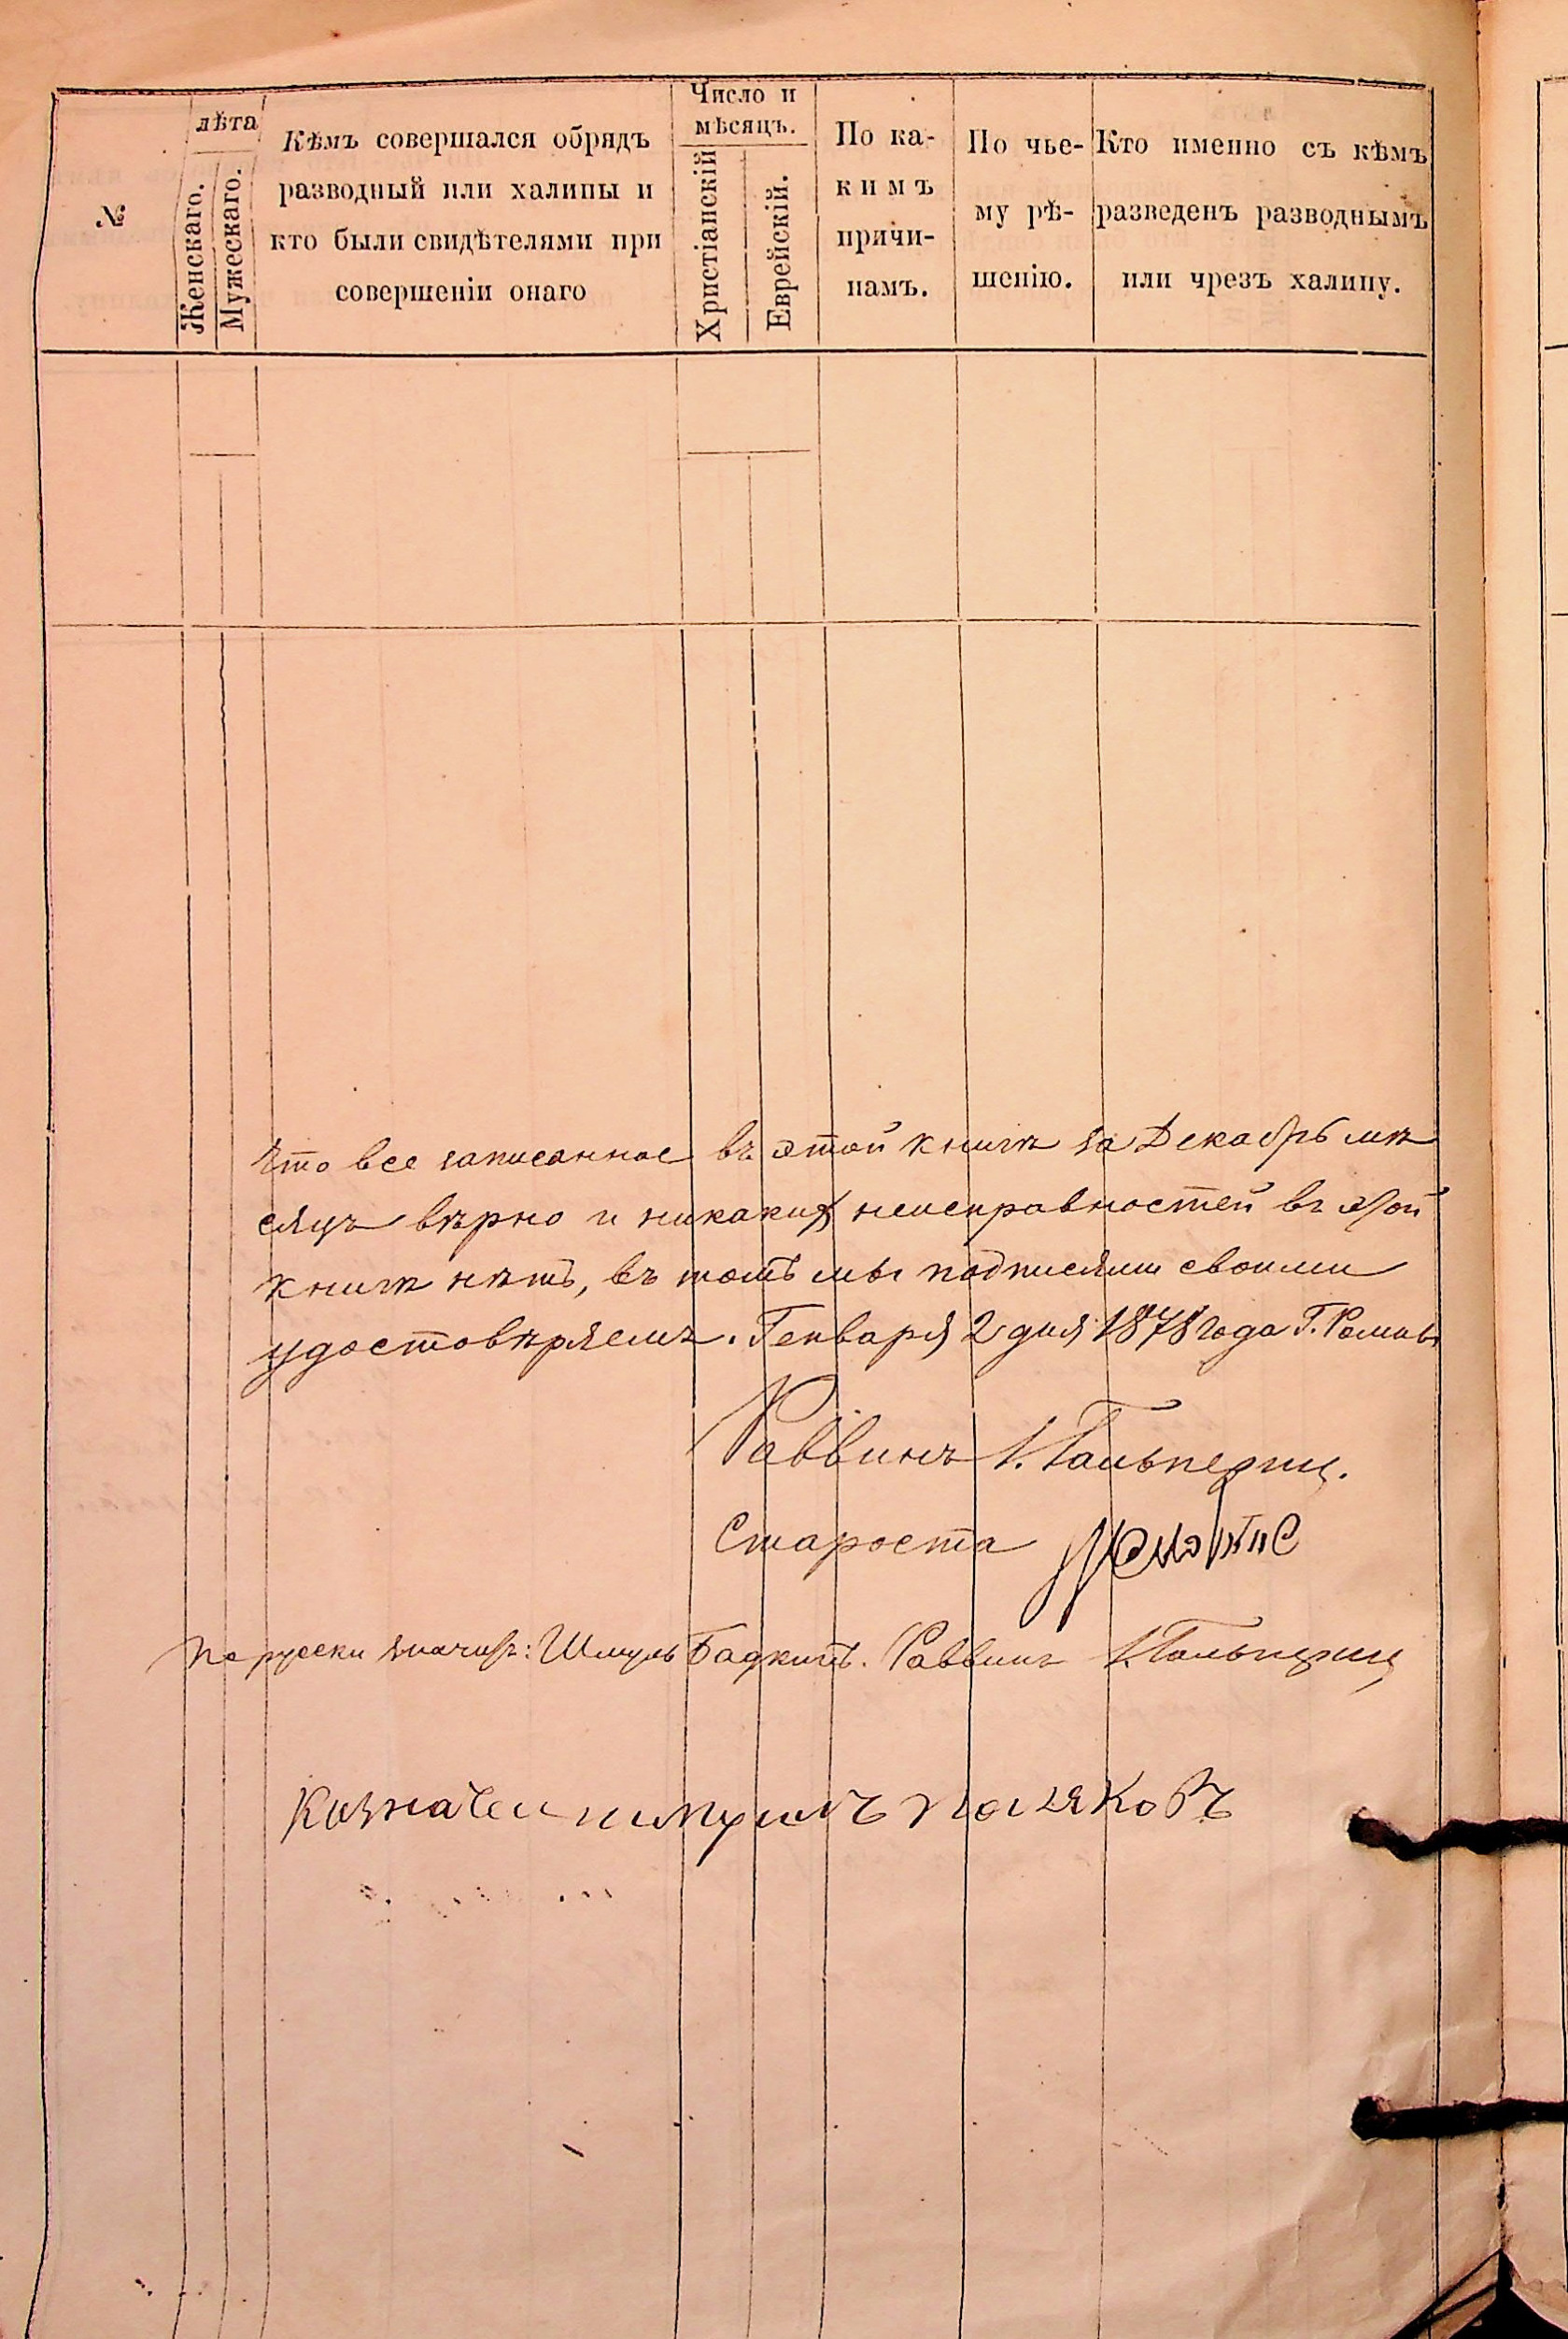 №
лѣта
Женскаго.
Мужескаго.
Кѣмъ совершался обрядъ
разводный или халицы и
кто были свидѣтелями при
совершеніи онаго
Число и
мѣсяцъ.
Христіанскій
Еврейскій.
По ка-
кимъ
причи-
намъ.
По чье-
му рѣ-
шенію.
Кто именно съ кѣмъ
разведенъ разводнымъ
или чрезъ халицу.
Что все записанное въ этой книгѣ за Декабрь мѣ
сяцъ вѣрно и никакихъ неисправностей въ этой
книгѣ нѣтъ, въ томъ мы подписями своими
удостовѣряемъ. Генваря 2 дня 1878 года Г. Ромны
Раввинъ И. Гальперин.
Староста
По русски значитъ: Шмуль Раввинъ И. Гальперин
Казначеи Поляковъ